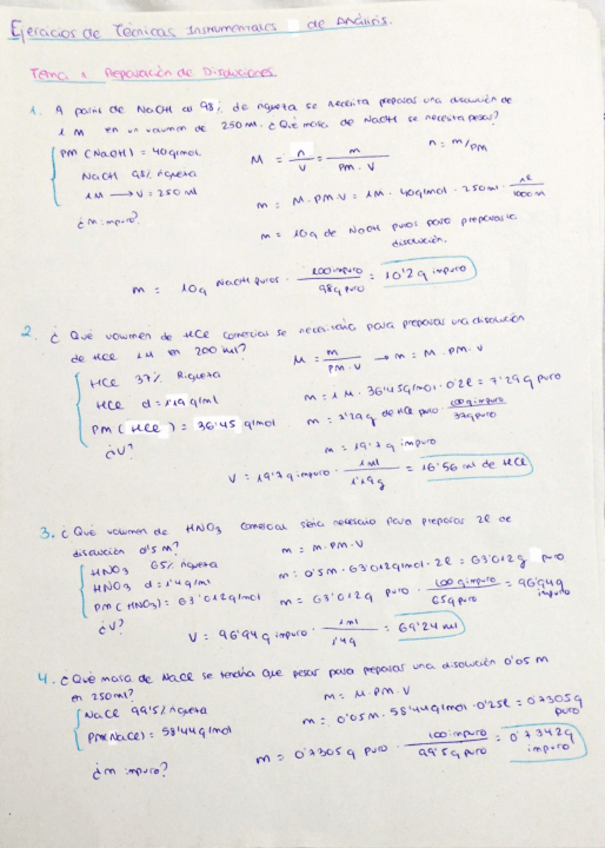 Ejercicios de Técnicas Instrumentales de Análisis.
Tema 1 Preparación de Disoluciones
1. A partir de NaOH al 98% de riqueza se necesita preparar una disolución de
1 M en un volumen de 250 ml. ¿Qué masa de NaOH se necesita pesar?
PM (NaOH) = 40g/mol
NaOH 98% riqueza
1M → V = 250 ml
¿m impuro?
M = n/V = m/PM · V
n = m/PM
m = M · PM · V = 1M · 40g/mol · 250 ml · 1l/1000 ml
m = 10g de NaOH puros para preparar la
disolución.
m = 10g NaOH puros · 100 impuro/98g puro = 10'2 g impuro
2. ¿Qué volumen de HCl comercial se necesitaría para preparar una disolución
de HCl 1M en 200 ml?
HCl 37% Riqueza
HCl d = 1'19 g/ml
PM (HCl) = 36'45 g/mol
¿V?
M = m/PM · V → m = M · PM · V
m = 1 M · 36'45g/mol · 0'2l = 7'29g puro
m = 7'29g de HCl puro · 100g impuro/37g puro
m = 19'7 g impuro
V = 19'7 g impuro · 1 ml/1'19g = 16'56 ml de HCl
3. ¿Qué volumen de HNO₃ comercial sería necesario para preparar 2l de
disolución 0'5 M?
HNO₃ 65% riqueza
HNO₃ d = 1'4 g/ml
PM (HNO₃) = 63'012g/mol
¿V?
m = M · PM · V
m = 0'5M · 63'012g/mol · 2l = 63'012g puro
m = 63'012g puro · 100 g impuro/65g puro = 96'94g
impuro
V = 96'94 g impuro · 1 ml/1'4g = 69'24 ml
4. ¿Qué masa de NaCl se tendría que pesar para preparar una disolución 0'05 M
en 250 ml?
NaCl 99'5% riqueza
PM(NaCl) = 58'44g/mol
¿m impuro?
m = M · PM · V
m = 0'05M · 58'44g/mol · 0'25l = 0'7305g
puro
m = 0'7305 g puro · 100 impuro/99'5g puro = 0'7342g
impuro